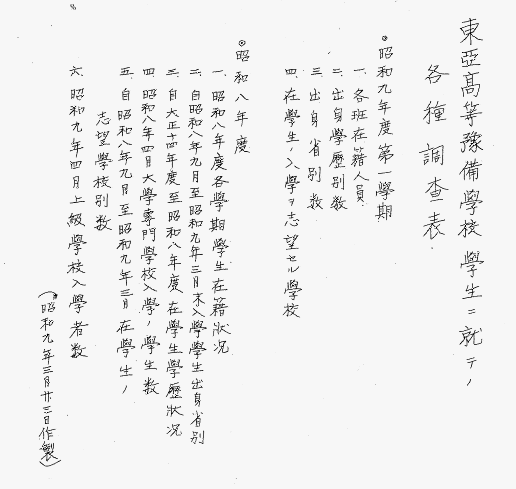 東亞高等豫備學校學生ニ就テノ
各種調査表
◎昭和九年度第一學期
一.各班在籍人員
二.出身學歷別數
三.出身省別數
四.在學生ノ入學ヲ志望セル學校
◎昭和八年度
一.昭和八年度各學期學生在籍狀況
二.自昭和八年九月至昭和九年三月末入學學生出身省別
三.自大正十四年度至昭和八年度在學生學歷狀況
四.昭和八年四月大學專門學校入學ノ學生數
五.自昭和八年九月至昭和九年三月在學生ノ
志望學校別數
六.昭和九年四月上級學校入學者數
(昭和九年三月廿三日作製)